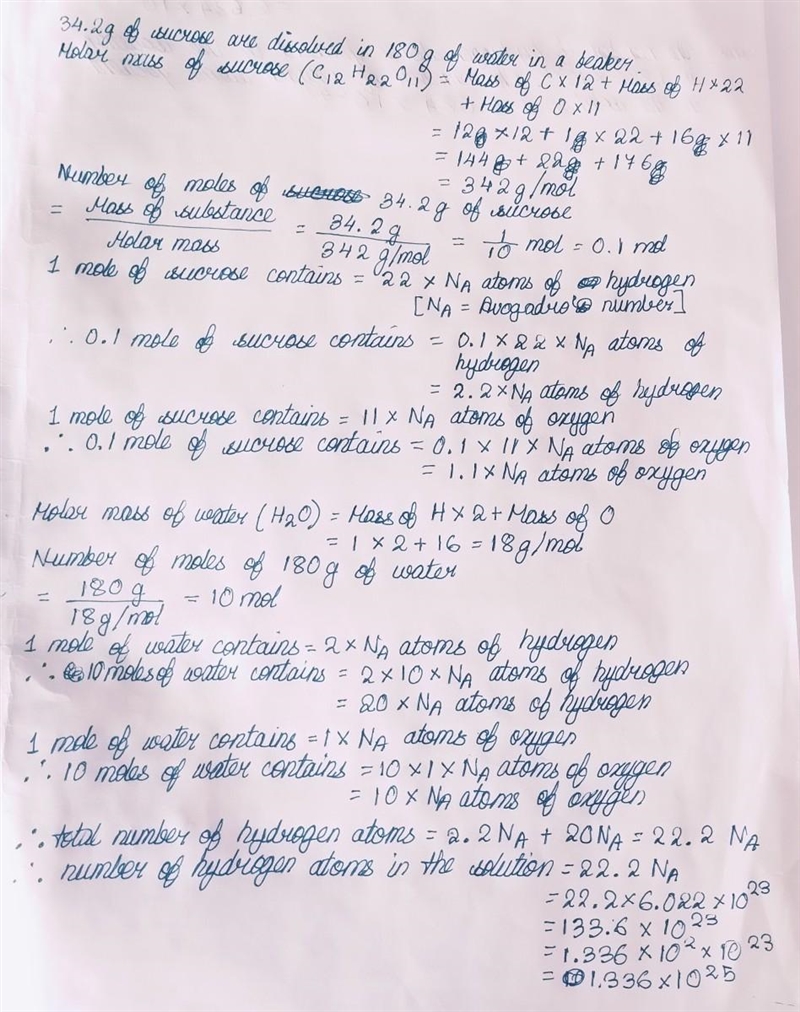 34.2g of sucrose are dissolved in 180g of water in a beaker.
Molar mass of sucrose (C₁₂H₂₂O₁₁) = Mass of C × 12 + Mass of H × 22
+ Mass of O × 11
= 12g × 12 + 1g × 22 + 16g × 11
= 144g + 22g + 176g
= 342g/mol
Number of moles of 34.2g of sucrose
= Mass of substance / Molar mass = 34.2g / 342g/mol = 1/10 mol = 0.1 mol
1 mole of sucrose contains = 22 × Nᴀ atoms of hydrogen
[Nᴀ = Avogadro's number]
∴ 0.1 mole of sucrose contains = 0.1 × 22 × Nᴀ atoms of
hydrogen
= 2.2 × Nᴀ atoms of hydrogen
1 mole of sucrose contains = 11 × Nᴀ atoms of oxygen
∴ 0.1 mole of sucrose contains = 0.1 × 11 × Nᴀ atoms of oxygen
= 1.1 × Nᴀ atoms of oxygen
Molar mass of water (H₂O) = Mass of H × 2 + Mass of O
= 1 × 2 + 16 = 18g/mol
Number of moles of 180g of water
= 180g / 18g/mol = 10 mol
1 mole of water contains = 2 × Nᴀ atoms of hydrogen
∴ 10 moles of water contains = 2 × 10 × Nᴀ atoms of hydrogen
= 20 × Nᴀ atoms of hydrogen
1 mole of water contains = 1 × Nᴀ atoms of oxygen
∴ 10 moles of water contains = 10 × 1 × Nᴀ atoms of oxygen
= 10 × Nᴀ atoms of oxygen
∴ total number of hydrogen atoms = 2.2 Nᴀ + 20 Nᴀ = 22.2 Nᴀ
∴ number of hydrogen atoms in the solution = 22.2 Nᴀ
= 22.2 × 6.022 × 10²³
= 133.6 × 10²³
= 1.336 × 10² × 10²³
= 1.336 × 10²⁵